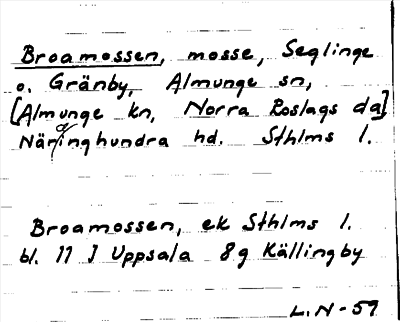 Broamossen, mosse, Seglinge
o. Gränby, Almunge sn,
[Almunge kn, Norra Roslags da]
Närdinghundra hd. Sthlms l.
Broamossen, ek Sthlms l.
bl. 11 I Uppsala 8g Källingby
L.N-59